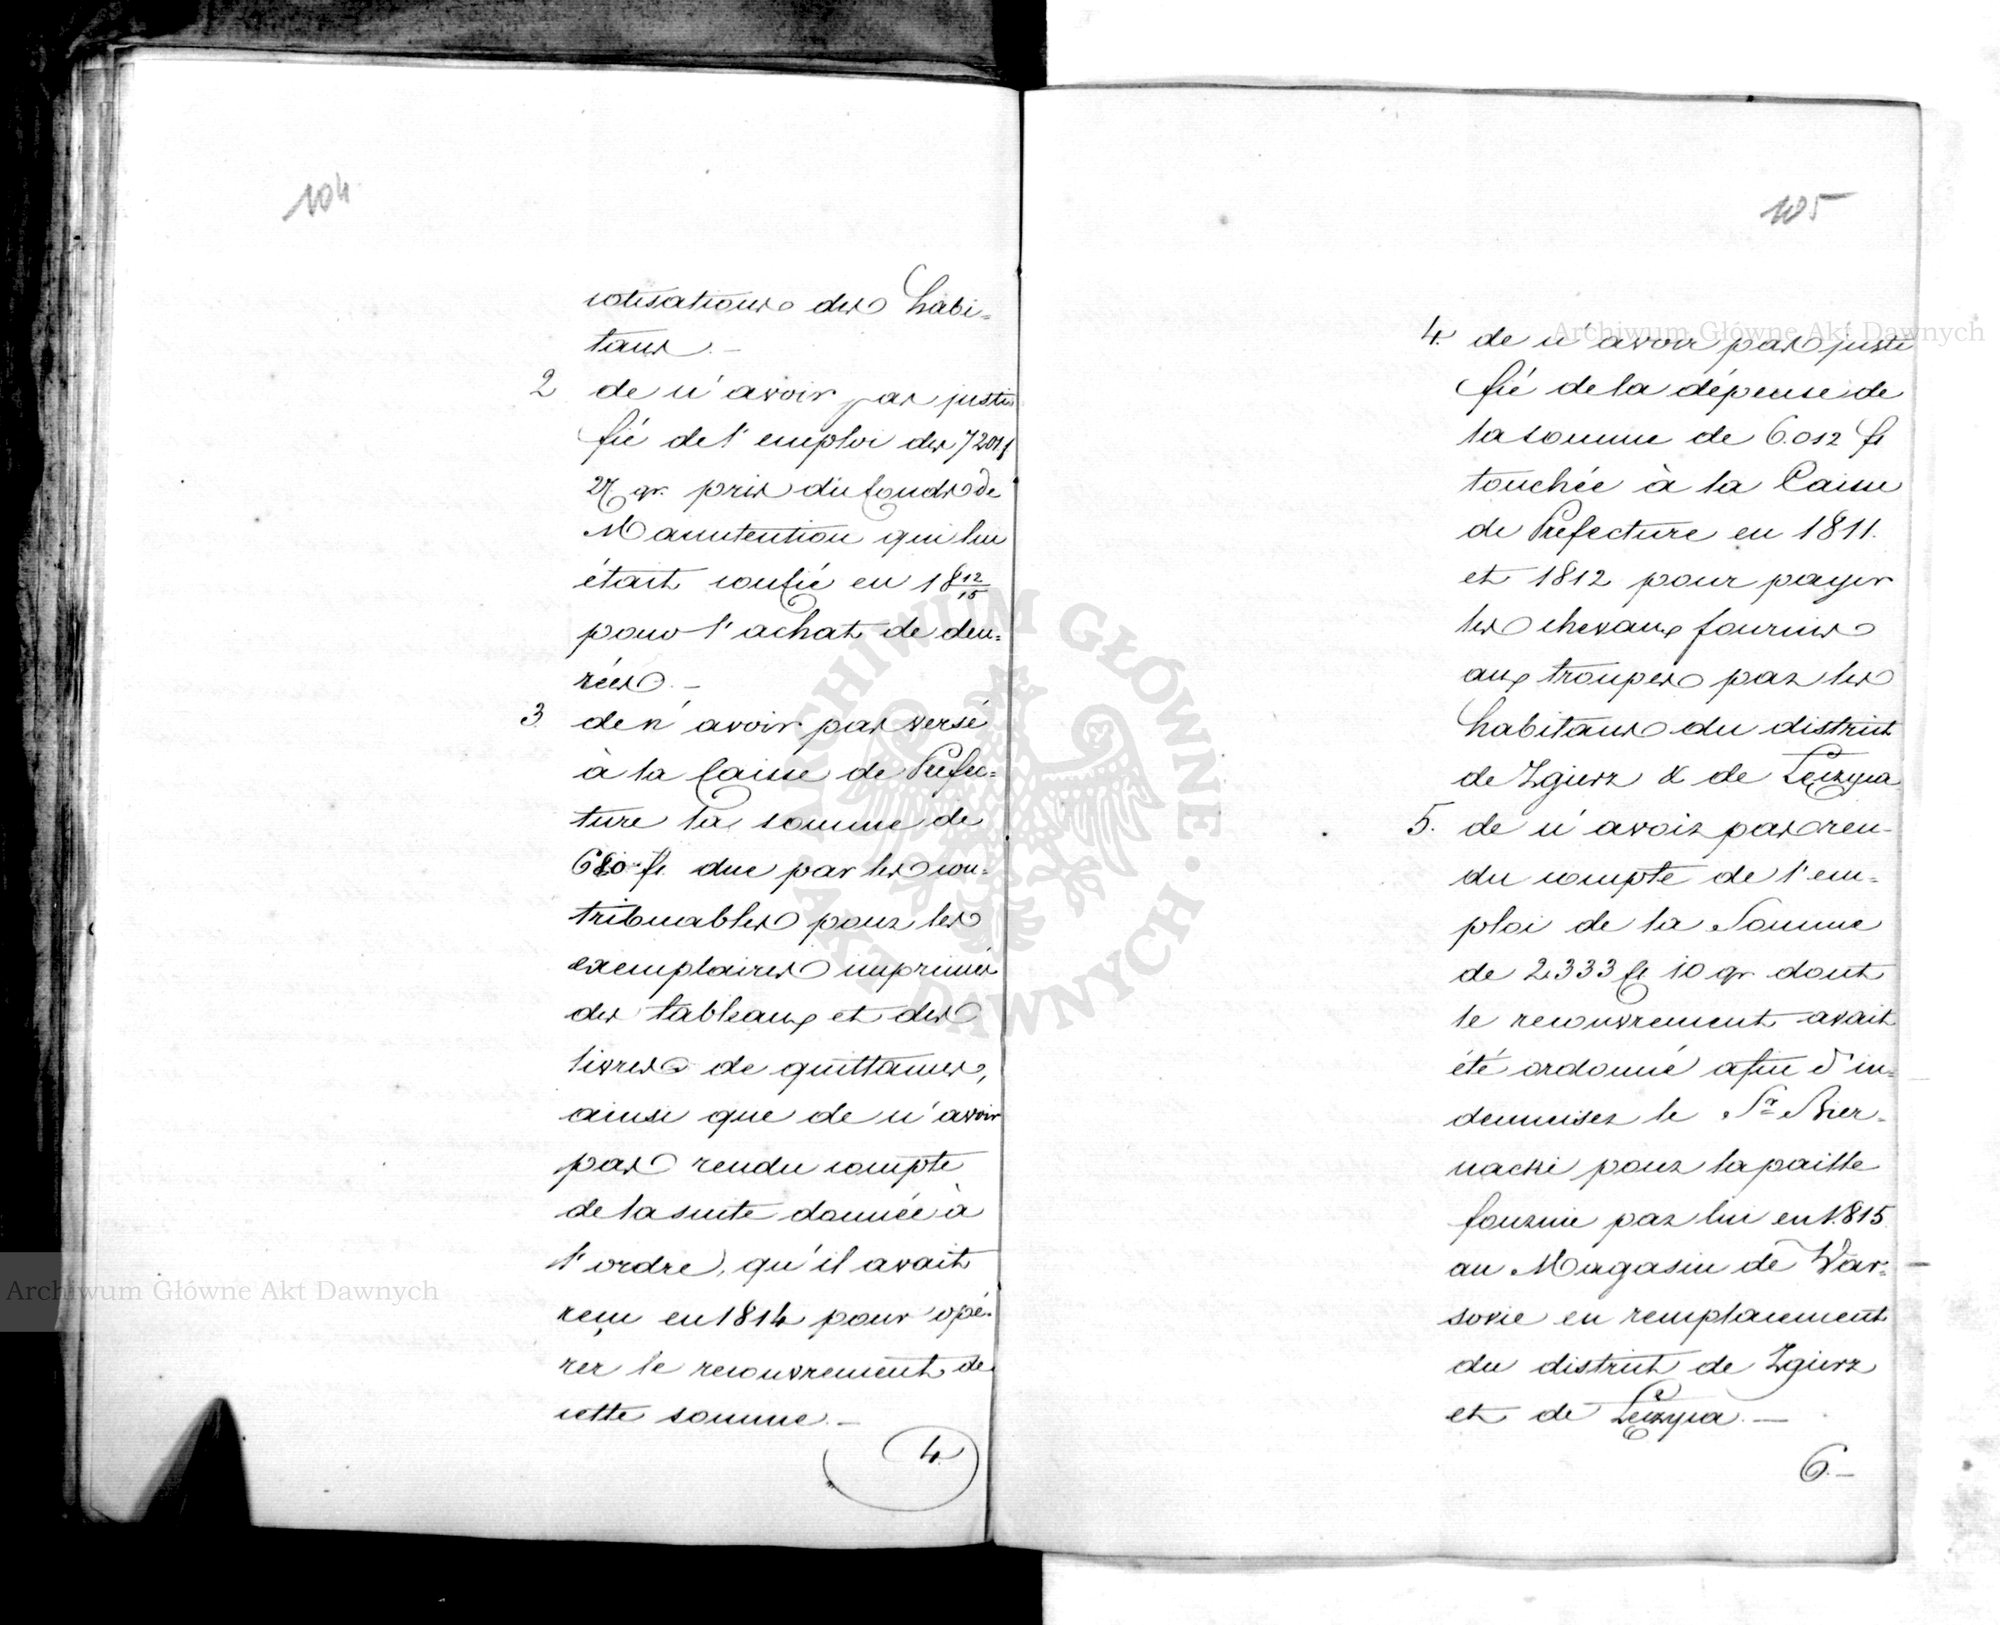 104
cotisations des habi-
tans. –
2 de n'avoir pas justi-
fié de l'emploi des 7201 f
27 gr. pris du fonds de
Manutention qui lui
était confié en 18 12/15
pour l'achat de den-
rées. –
3. de n'avoir pas versé
à la Caisse de Préfec-
ture la somme de
680 fl. due par les con-
tribuables pour les
exemplaires imprimés
des tableaux et des
livres de quittances,
ainsi que de n'avoir
pas rendu compte
de la suite donnée à
l'ordre, qu'il avait
reçu en 1814 pour opé-
rer le recouvrement de
cette somme. –
4.
105
4. de n'avoir pas justi
fié de la dépense de
la somme de 6.012 fl
touchée à la Caisse
de Préfecture en 1811.
et 1812 pour payer
les chevaux fournis
aux troupes par les
habitans du district
de Zgierz & de Łęczyca
5. de n'avoir pas ren-
du compte de l'em-
ploi de la Somme
de 2333 fl 10 gr dont
le recouvrement avait
été ordonné afin d'in-
demniser le Sr Bier-
nacki pour la paille
fournie par lui en 1815
au Magasin de Var-
sovie en remplacement
du district de Zgierz
et de Łęczyca. –
6. –
Archiwum Główne Akt Dawnych
Archiwum Główne Akt Dawnych
ARCHIWUM GŁÓWNE AKT DAWNYCH